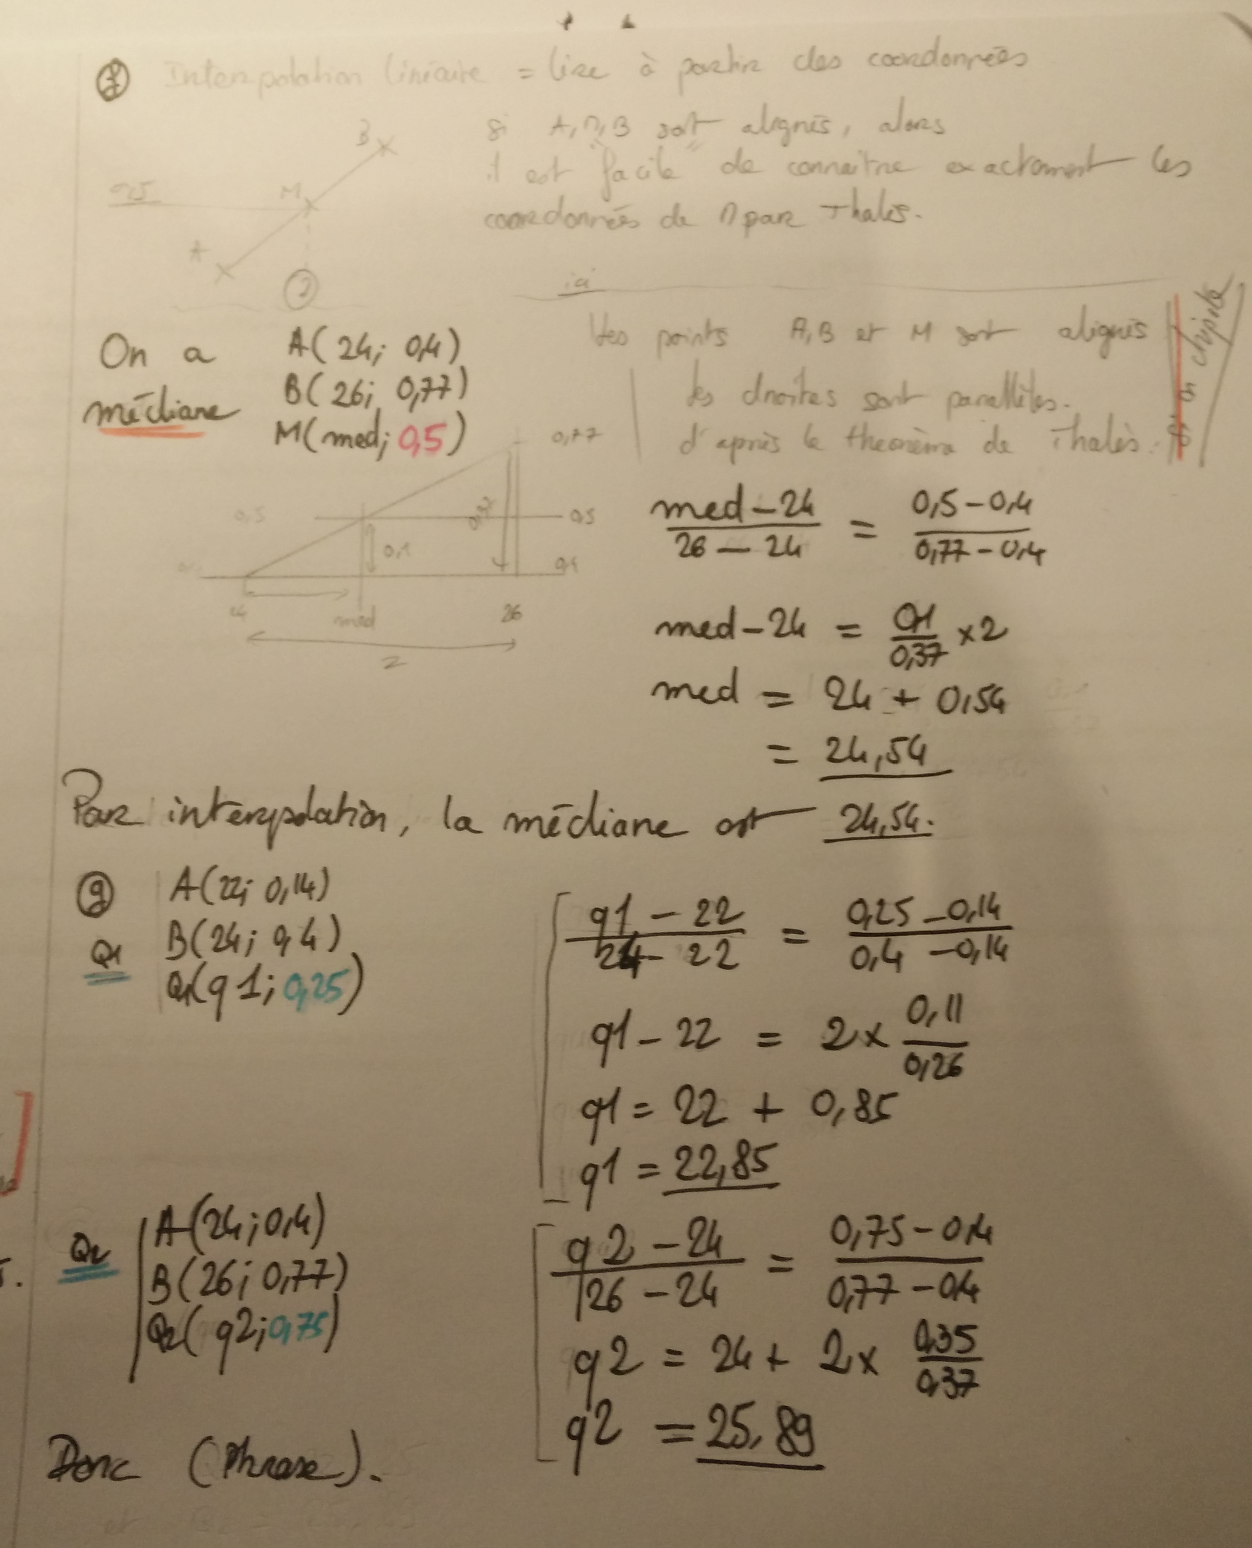 f Interpolation linéaire = lire à partir des coordonnées
si A, M, B sont alignés, alors
il est "facile" de connaître exactement les
coordonnées de M par Thalès.
B
M
0,5
A
?
ici
On a A(24; 0,4)
médiane B(26; 0,77)
M(med; 0,5)
Les points A, B et M sont alignés
les droites sont parallèles.
d'après le théorème de Thalès.
0,77
0,5 0,5
0,37
0,1
0,4
24 med 26
2
med-24 / 26-24 = 0,5-0,4 / 0,77-0,4
med-24 = 0,1/0,37 ×2
med = 24 + 0,54
= 24,54
Par interpolation, la médiane est 24,54.
g A(22; 0,14)
Q1 B(24; 0,4)
Q1(q1; 0,25)
q1-22 / 24-22 = 0,25-0,14 / 0,4-0,14
q1-22 = 2× 0,11/0,26
q1 = 22 + 0,85
q1 = 22,85
Q2 A(24; 0,4)
B(26; 0,77)
Q2(q2; 0,75)
q2-24 / 26-24 = 0,75-0,4 / 0,77-0,4
q2 = 24 + 2× 0,35/0,37
q2 = 25,89
Donc (Phrase).